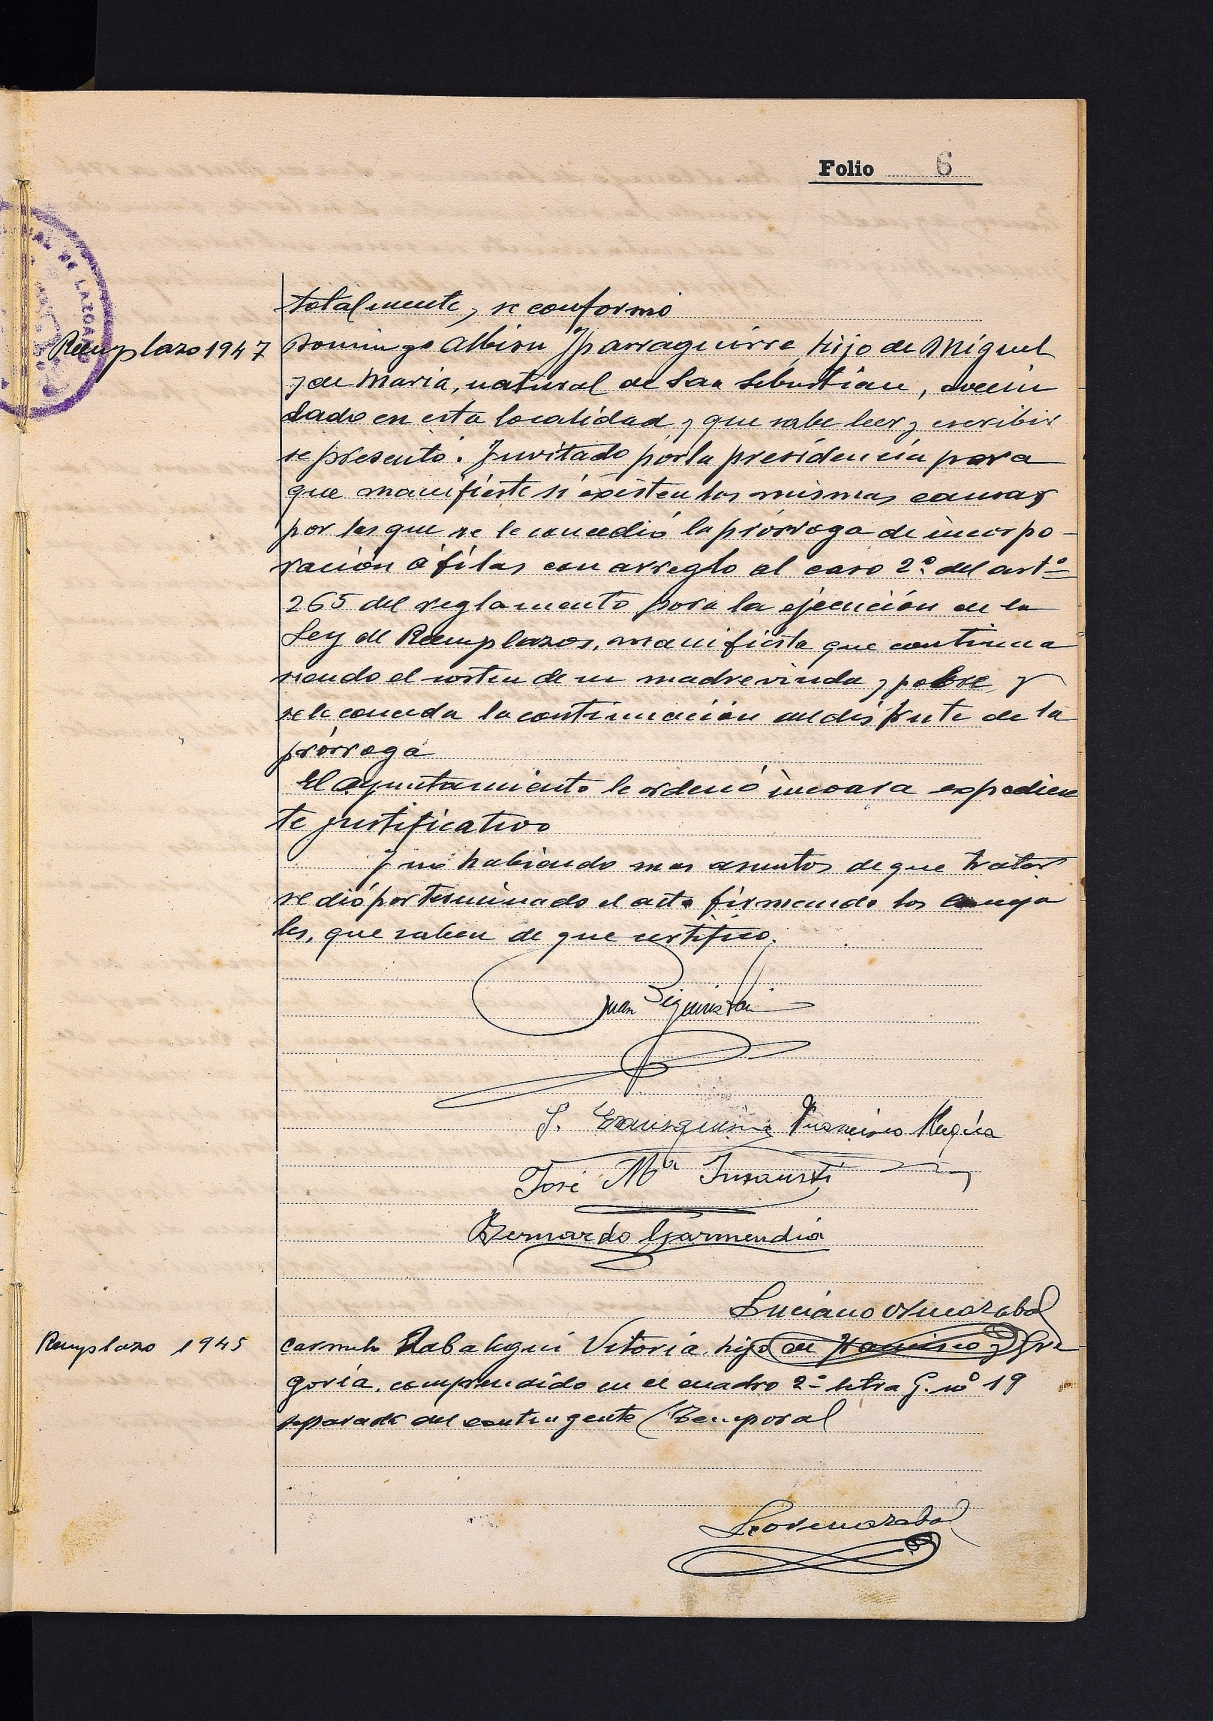 Folio 6
totalmente, se conformó
Remplazo 1947 Domingo Albisu Yparraguirre hijo de Miguel
y de Maria, natural de San Sebastian, avecin
dado en esta localidad y que sabe leer y escribir
se presentó. Invitado por la presidencia para
que manifieste si existen las mismas causas
por las que se le concedió la prórroga de incorpo-
ración á filas con arreglo al caso 2º del artº
265 del reglamento para la ejecución de la
Ley de Remplazos, manifiesta que continua
siendo el sosten de su madre viuda y pobre y
se le conceda la continuación del disfrute de la
prórroga
El Ayuntamiento le ordenó incoara expedien
te justificativo
Y no habiendo mas asuntos de que tratar
se dió por terminado el acto firmando los conceja
les, que saben de que certifico.
Juan
S. Francisco Mugica
José Mª Insausti
Bernardo Garmendia
Luciano Ormazabal
Remplazo 1945 Vitoria, hijo de Francisco y Gre
goria, comprendido en el cuadro 2º letra G. nº 19
separado del contingente (Temporal
L. Ormazabal